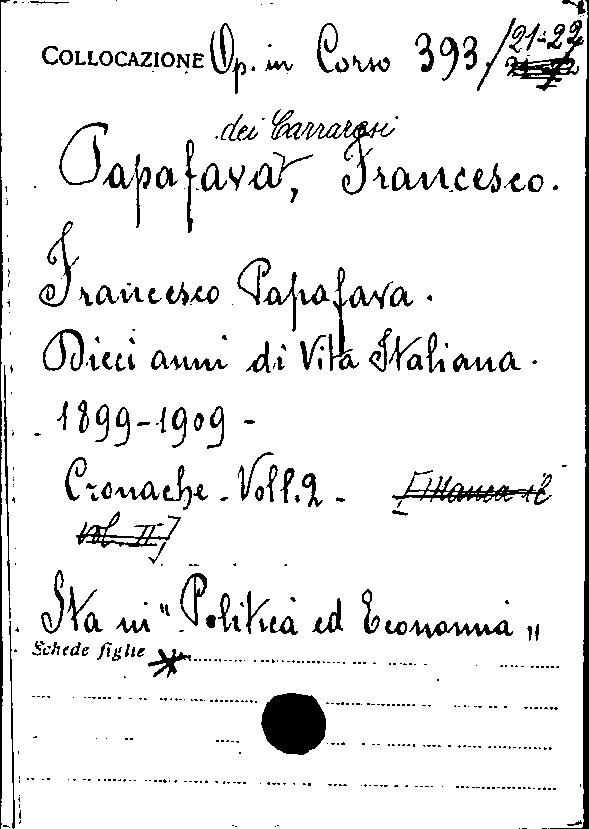 COLLOCAZIONE Op. in Corso 393/21-22
dei Carraresi
Papafava, Francesco.
Francesco Papafava.
Dieci anni di Vita Italiana.
1899-1909 -
Cronache - Voll. 2 - [Manca il
vol. II]
Sta in "Politica ed Economia"
Schede figlie